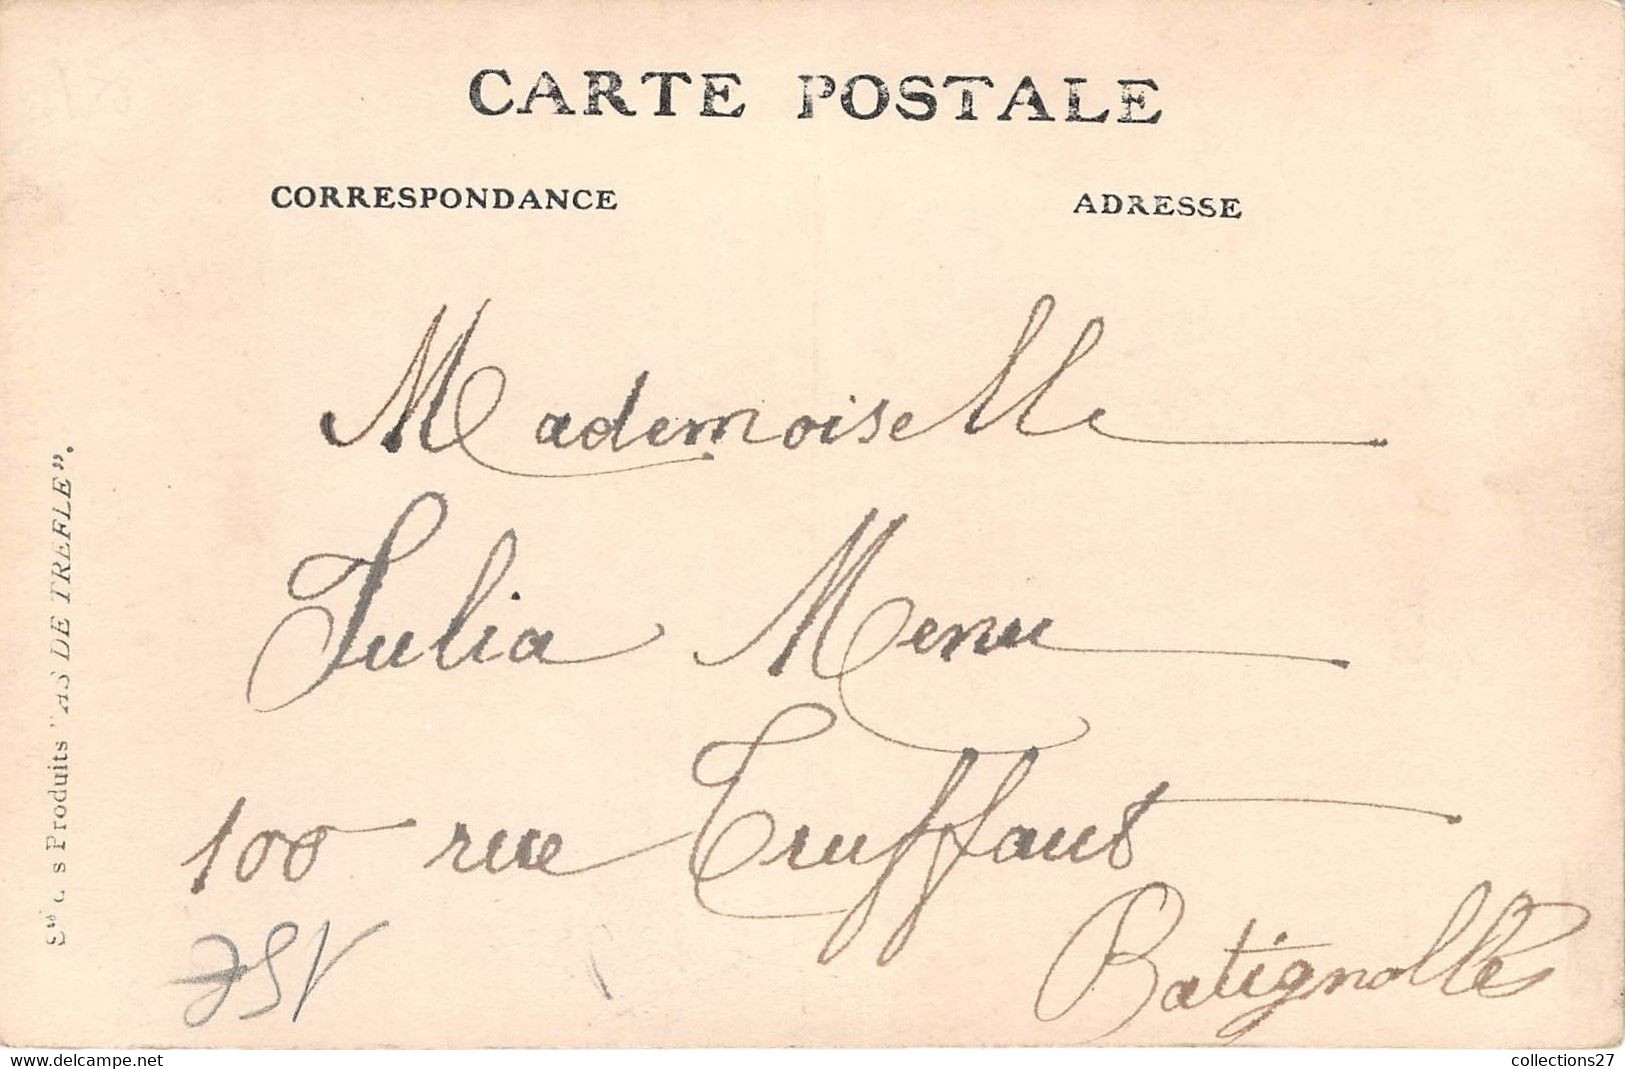 CARTE POSTALE
CORRESPONDANCE
ADRESSE
Mademoiselle
Julia Menu
100 rue Truffaut
Batignolles
Sté des Produits "AS DE TREFLE".
www.delcampe.net
collections27